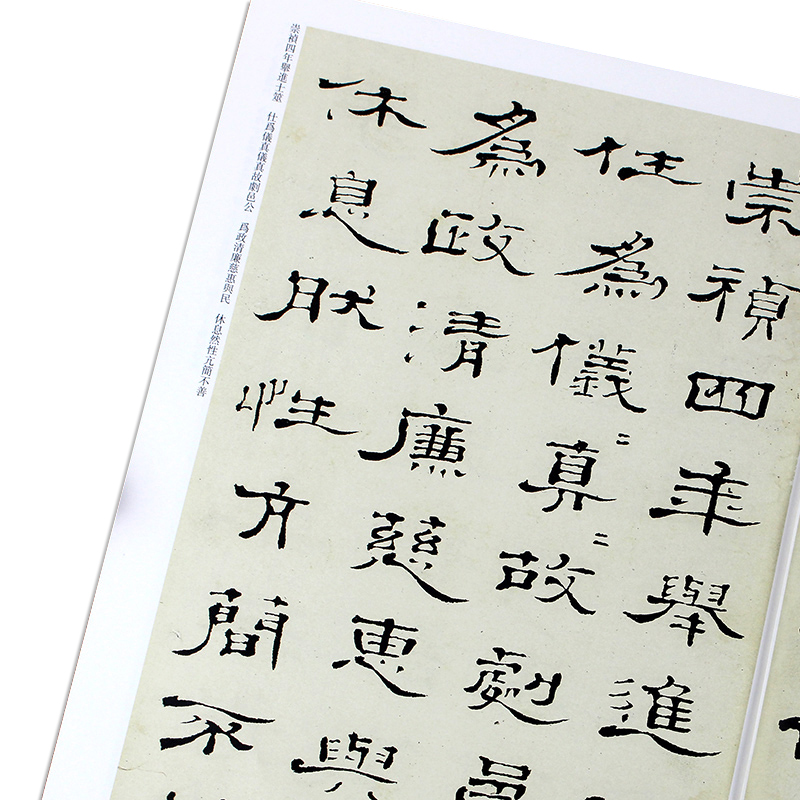 崇禎四年舉進
仕爲儀〻真〻故劇邑
爲政清廉慈惠與
休息肰性亢簡不
崇禎四年舉進士筮 仕爲儀真儀真故劇邑公 爲政清廉慈惠與民 休息然性亢簡不善